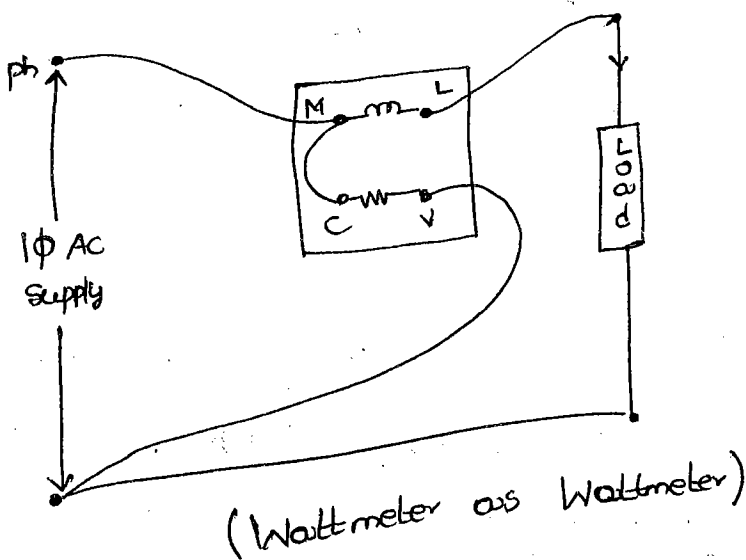 ph
M
L
C
V
Load
1ϕ AC
Supply
(Wattmeter as Wattmeter)